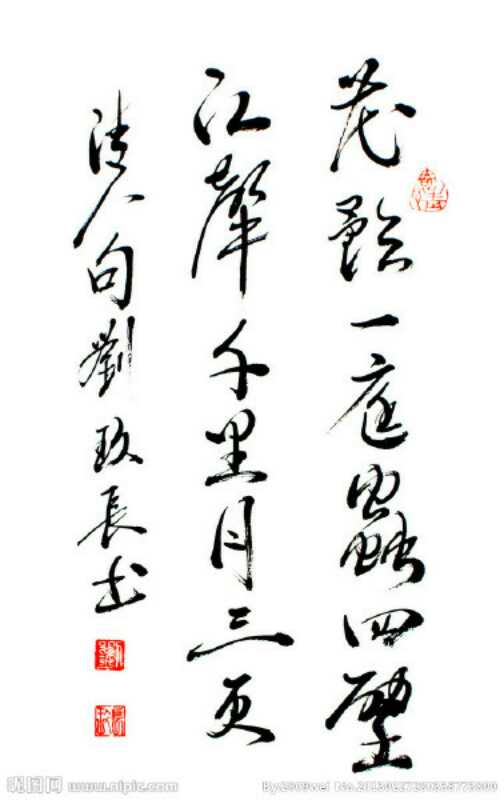 花影一庭蟲四壁
江聲千里月三更
清人句劉玖長书
昵图网 www.nipic.com
By:2009wei